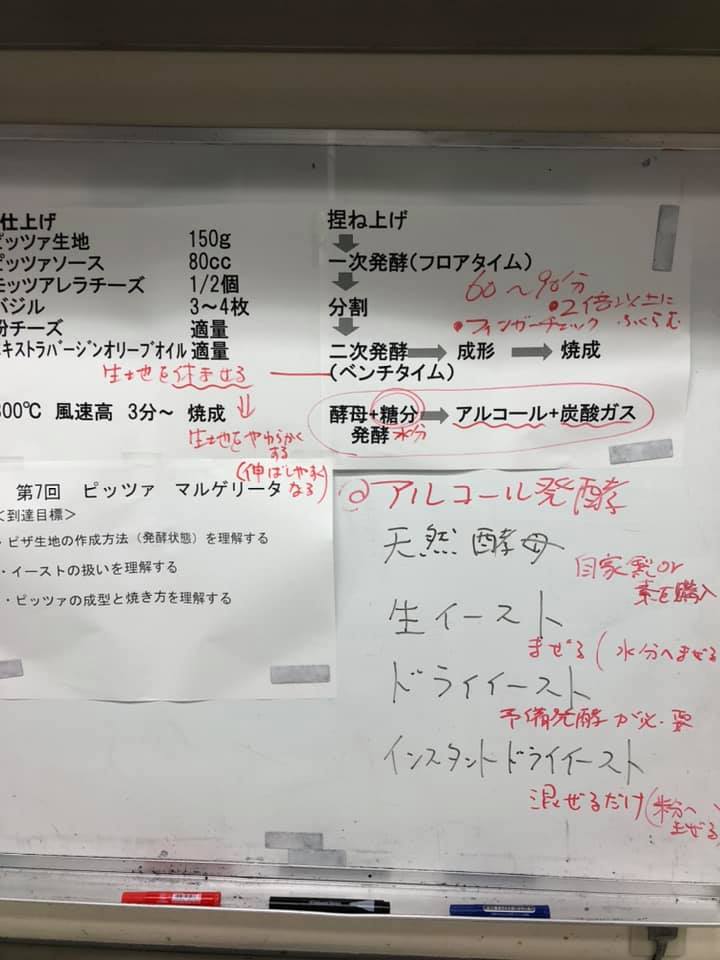 仕上げ
ピッツァ生地 150g
ピッツァソース 80cc
モッツアレラチーズ 1/2個
バジル 3～4枚
粉チーズ 適量
キストラバージンオリーブオイル 適量
生地を休ませる
00℃ 風速高 3分～ 焼成
生地をやわらかく
する
(伸ばしやすく
なる)
捏ね上げ
一次発酵(フロアタイム)
60～90分
・2倍以上に
ふくらむ
・フィンガーチェック
分割
二次発酵 成形 焼成
(ベンチタイム)
酵母+糖分 アルコール+炭酸ガス
発酵 水分
第7回 ピッツァ マルゲリータ
＜到達目標＞
・ピザ生地の作成方法（発酵状態）を理解する
・イーストの扱いを理解する
・ピッツァの成型と焼き方を理解する
◎アルコール発酵
天然酵母
自家製or
素を購入
生イースト
まぜる(水分へまぜる
ドライイースト
予備発酵が必要
インスタントドライイースト
混ぜるだけ(粉へ
まぜる)